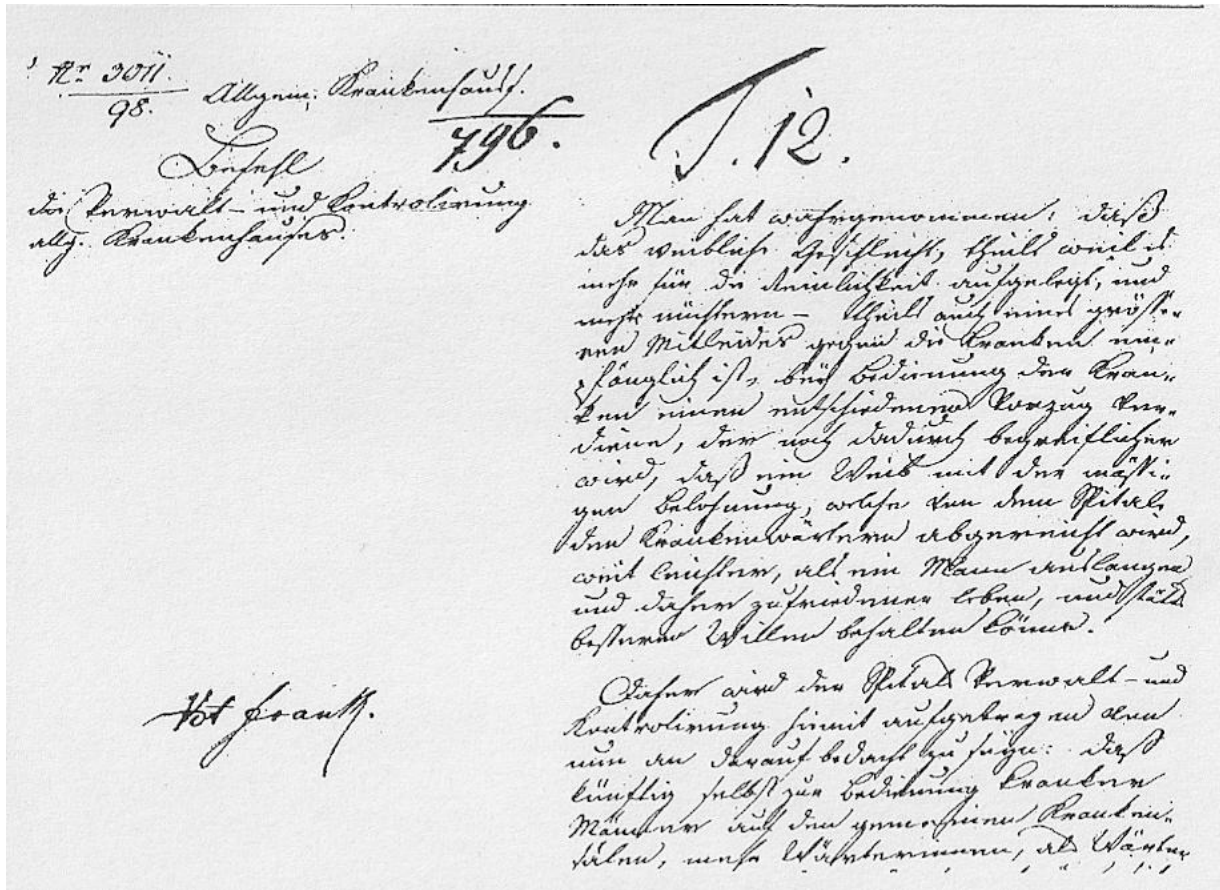 Nr 3011.
98.
Allgem. Krankenhaus.
796.
Befehl
die Verwalt- und Kontrolirung
allg. Krankenhauses.
T. 12.
Man hat wahrgenommen: daß
das weibliche Geschlecht, theils weil es
mehr für die Reinlichkeit aufgelegt, und
mehr nüchtern – theils auch eines grösse-
ren Mitleides gegen die Kranken em-
pfänglich ist, bey Bedienung der Kran-
ken einen entschiedenen Vorzug ver-
diene, der noch dadurch begreiflicher
wird, daß ein Weib mit der mässi-
gen Belohnung, welche von dem Spital
den Krankenwärtern abgereicht wird,
weit leichter, als ein Mann auslangen
und daher zufriedener leben, und stäts
besseren Willen behalten könne.
Daher wird der Spitals Verwalt- und
Kontrolirung hiemit aufgetragen von
nun an darauf bedacht zu seyn: daß
künftig selbst zur Bedienung kranker
Männer auf den gemeinen Kranken-
sälen, mehr Wärterinnen, als Wärter
Frank.